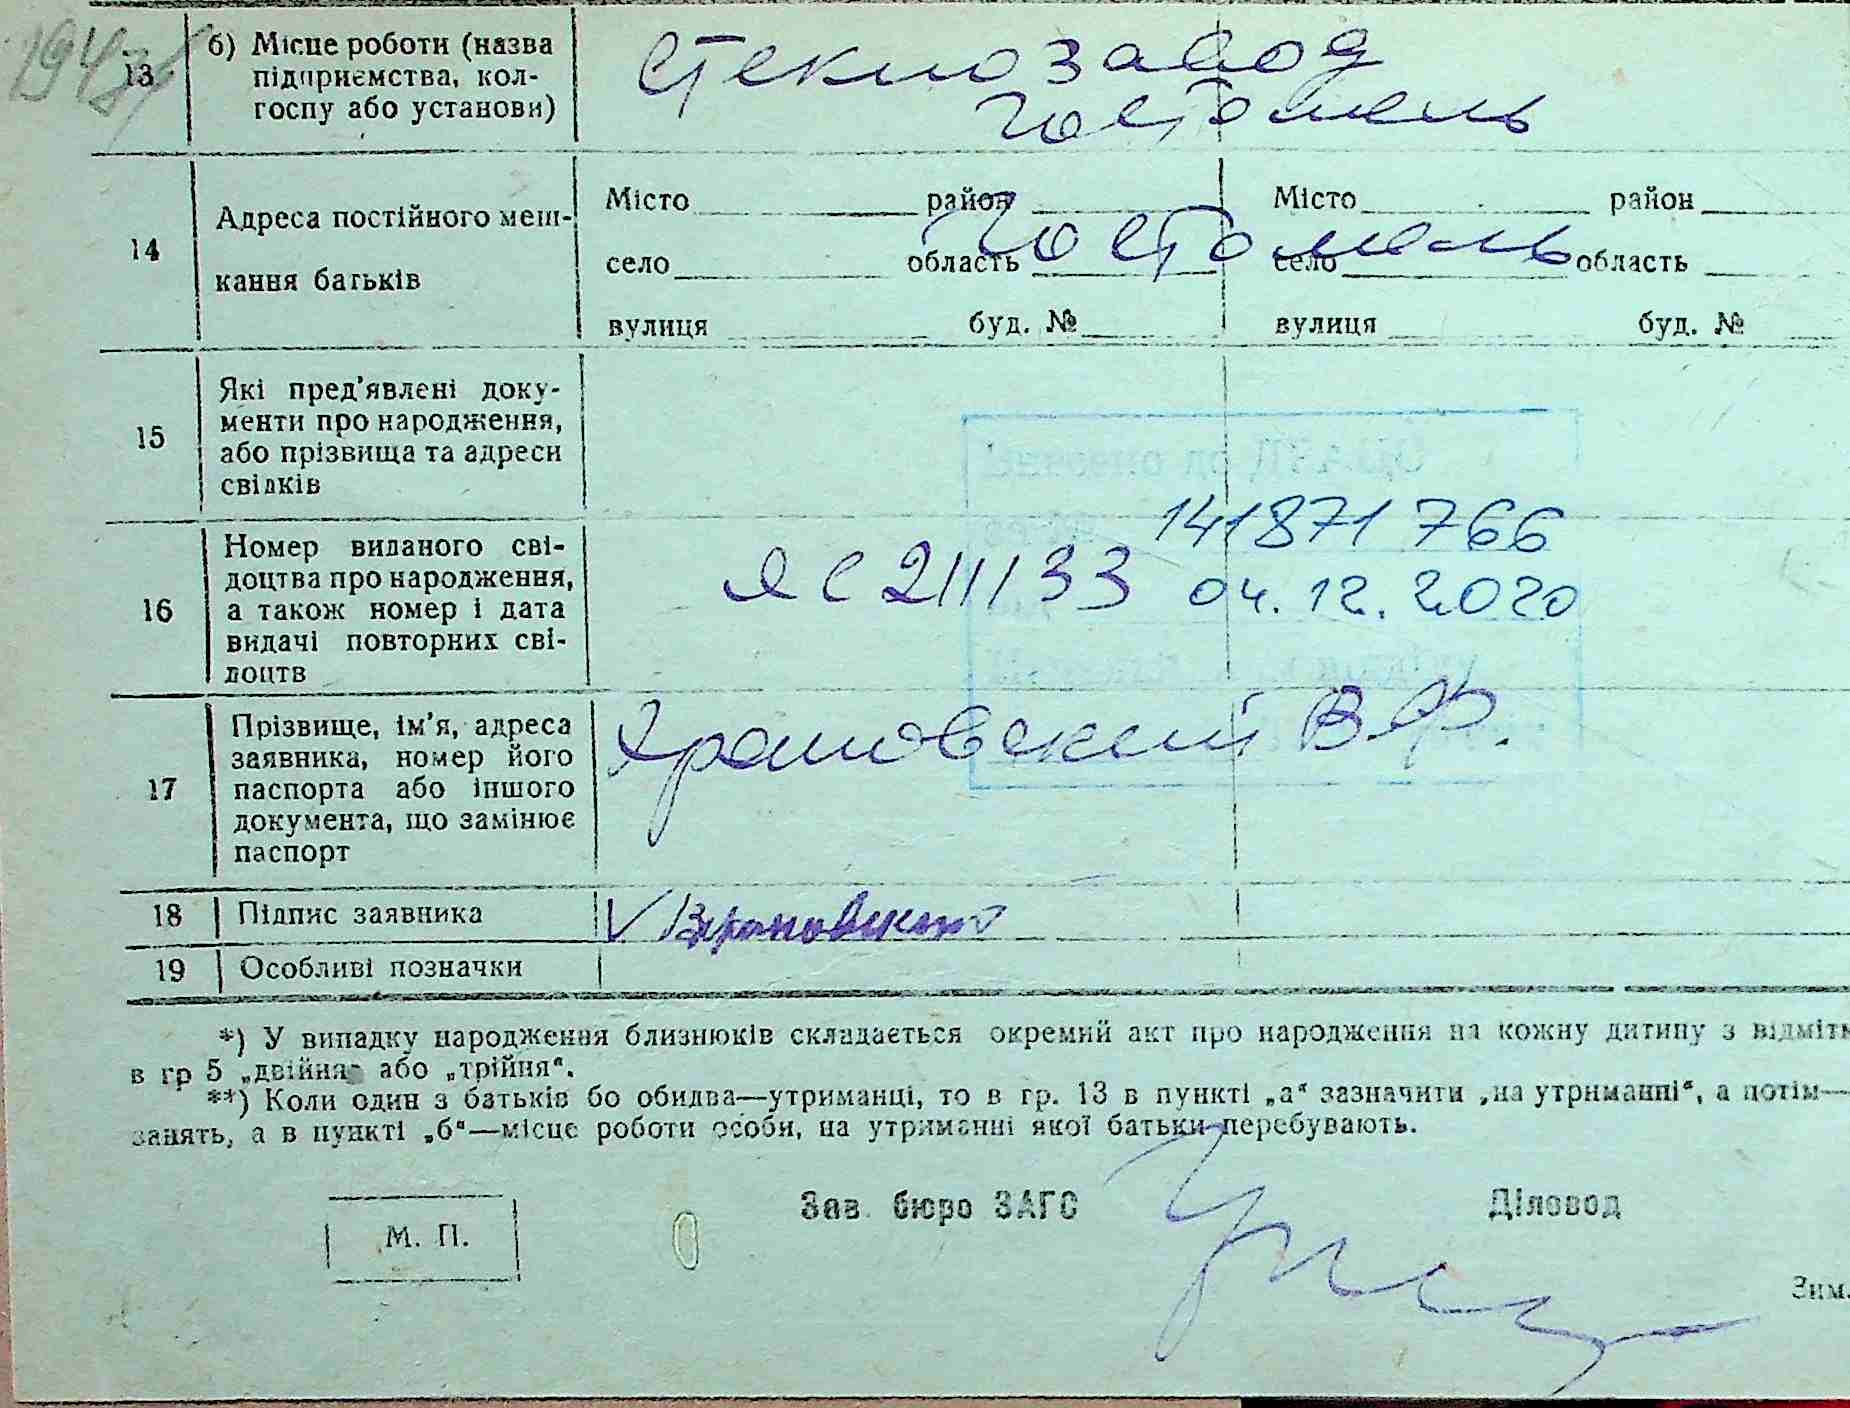 194
13
б) Місце роботи (назва
підприємства, кол-
госпу або установи)
Стеклозавод
Гостомель
14
Адреса постійного меш-
кання батьків
Місто район Місто район
Гостомель
село область село область
вулиця буд. № вулиця буд. №
15
Які пред'явлені доку-
менти про народження,
або прізвища та адреси
свідків
16
Номер виданого сві-
доцтва про народження,
а також номер і дата
видачі повторних сві-
доцтв
141871 766
ЯС 211133 04.12.2020
17
Прізвище, ім'я, адреса
заявника, номер його
паспорта або іншого
документа, що замінює
паспорт
В.Ф.
18 Підпис заявника
19 Особливі позначки
*) У випадку народження близнюків складається окремий акт про народження на кожну дитину з відмітк
в гр 5 „двійня“ або „трійня“.
**) Коли один з батьків бо обидва—утриманці, то в гр. 13 в пункті „а“ зазначити „на утриманні“, а потім—
занять, а в пункті „б“—місце роботи особи, на утриманні якої батьки перебувають.
М. П.
Зав. бюро ЗАГС
Діловод
Зим.